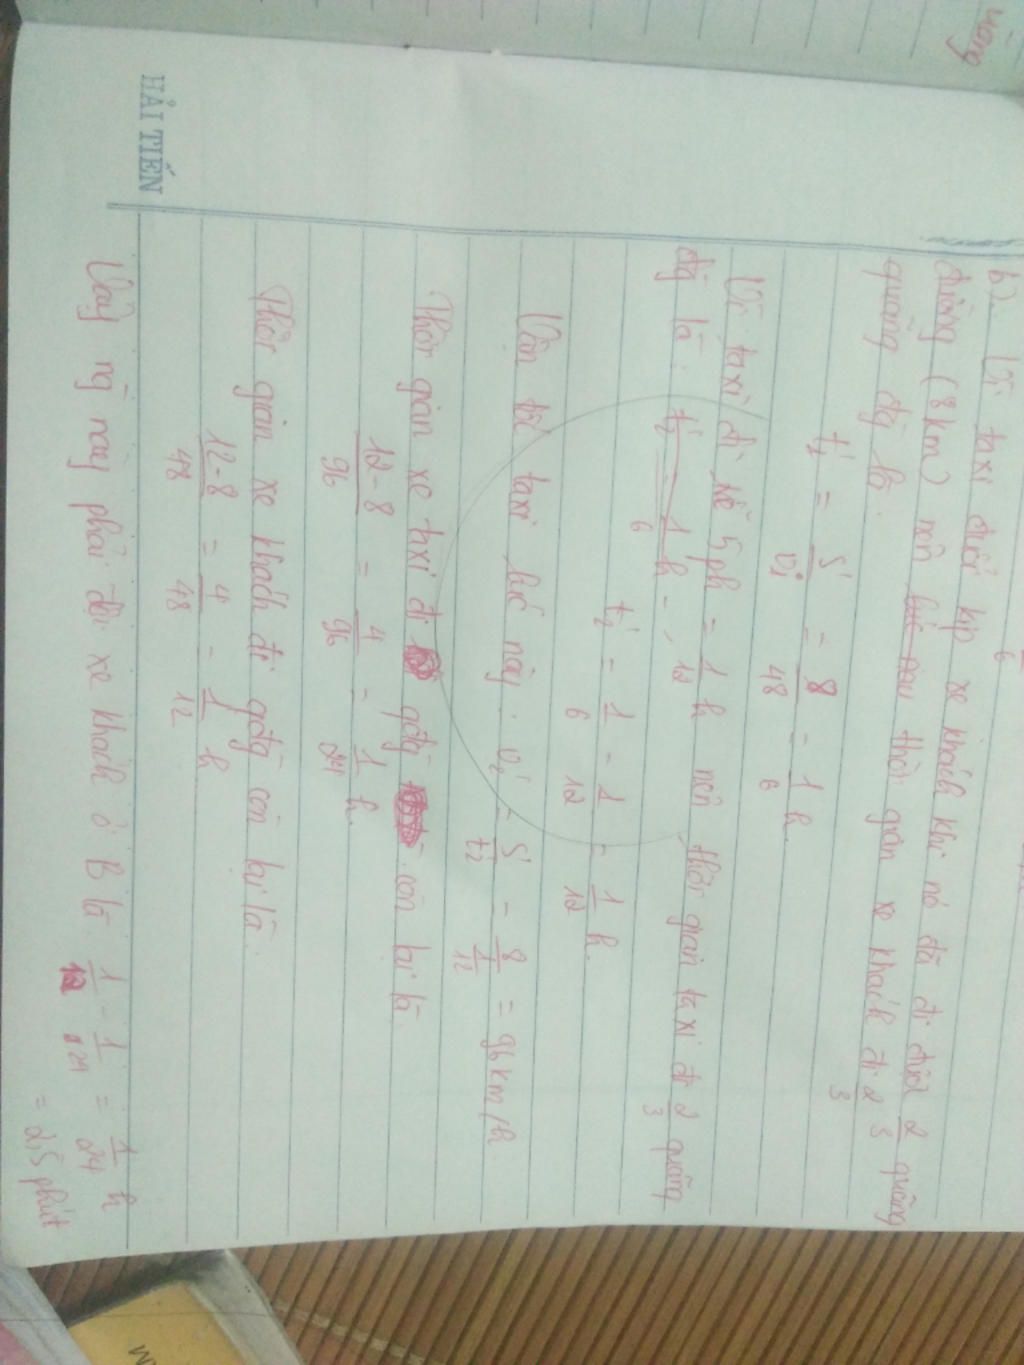 b). Vì taxi đuổi kịp xe khách khi nó đã đi được 2/3 quãng
đường (8km) nên thời gian xe khách đi 2/3
quãng đg là:
t1' = S'/v1 = 8/48 = 1/6 h.
Vì taxi đi sau 5ph = 1/12 h nên thời gian taxi đi 2/3 quãng
đg là:
t2' = 1/6 - 1/12 = 1/12 h.
Vận tốc taxi lúc này: v2' = S'/t2' = 8/(1/12) = 96km/h
Thời gian xe taxi đi qđg còn lại là:
12-8/96 = 4/96 = 1/24 h.
Thời gian xe khách đi qđg còn lại là:
12-8/48 = 4/48 = 1/12 h
Vậy ng này phải đợi xe khách ở B là 1/12 - 1/24 = 1/24 h
= 2,5 phút
HẢI TIẾN